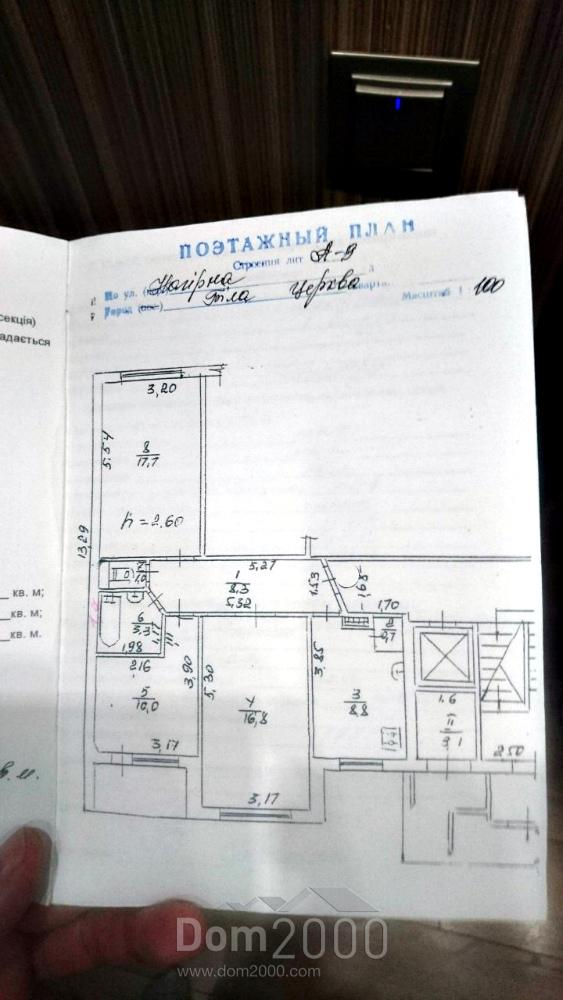 ПОЭТАЖНЫЙ ПЛАН
Строения лит А-9
По ул. Нагірна 3
Город Біла Церква кварт. Масштаб 1: 100
секція)
адається
кв. м;
кв. м;
кв. м.
кв. м.
3,20
5,54
8
17,7
h = 2.60
13,29
7
1,0
5,27
1
8,3
5,32
1,53
1,68
1,70
2
0,7
6
3,3
1,98
1,17
1,11
2,16
5
10,0
3,90
3,17
5,30
4
16,8
3,17
3,85
3
8,8
1,6
II
3,1
2,50
Dom2000
www.dom2000.com